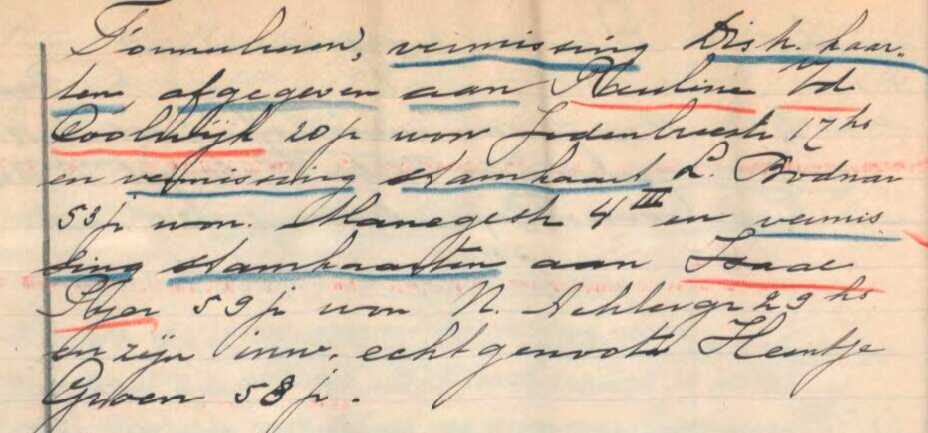 Formulieren, vermissing Distr. kaar-
ten afgegeven aan Pauline vd
Coolwijk 20 j won Jodenbreestr 17 hs
en vermissing stamkaart L. Bodnar
53 j won. Manegestr 4 III en vermis
sing stamkaarten aan Isaac
Ryer 59 j won N. Achtergr 29 hs
en zijn inw. echtgenoote Heintje
Groen 58 j.